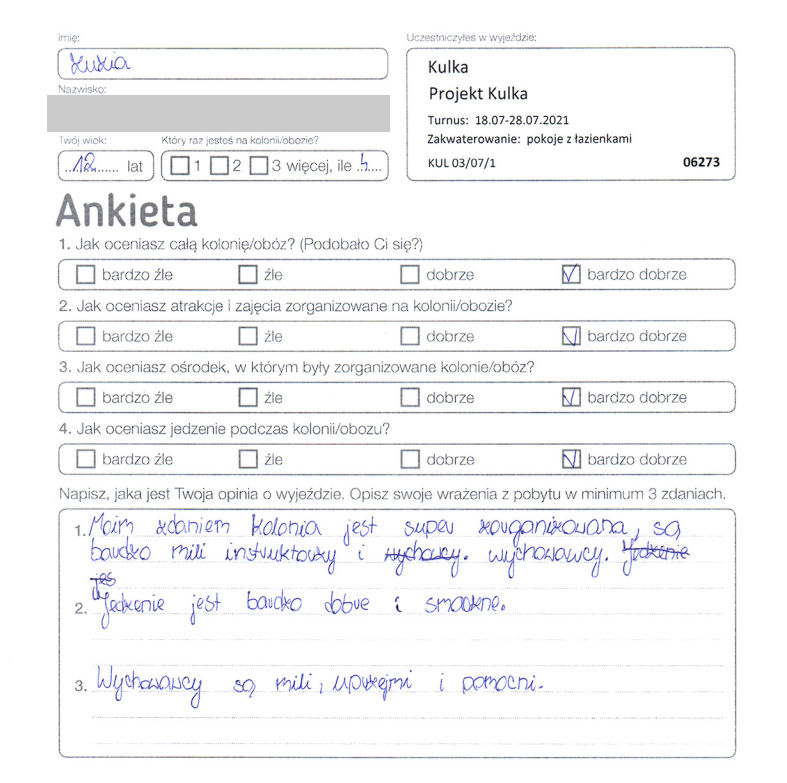 Imię:
Zuzia
Uczestniczyłeś w wyjeździe:
Kulka
Projekt Kulka
Turnus: 18.07-28.07.2021
Zakwaterowanie: pokoje z łazienkami
KUL 03/07/1 06273
Nazwisko:
Twój wiek:
..12...... lat
Który raz jesteś na kolonii/obozie?
1 2 3 więcej, ile ......
Ankieta
1. Jak oceniasz całą kolonię/obóz? (Podobało Ci się?)
bardzo źle źle dobrze bardzo dobrze
2. Jak oceniasz atrakcje i zajęcia zorganizowane na kolonii/obozie?
bardzo źle źle dobrze bardzo dobrze
3. Jak oceniasz ośrodek, w którym były zorganizowane kolonie/obóz?
bardzo źle źle dobrze bardzo dobrze
4. Jak oceniasz jedzenie podczas kolonii/obozu?
bardzo źle źle dobrze bardzo dobrze
Napisz, jaka jest Twoja opinia o wyjeździe. Opisz swoje wrażenia z pobytu w minimum 3 zdaniach.
1. Moim zdaniem kolonia jest super zorganizowana, są
bardzo mili instruktorzy i wychowcy. wychowawcy. Jedzenie
jes
2. Jedzenie jest bardzo dobre i smaczne.
3. Wychowawcy są mili, uprzejmi i pomocni.